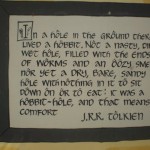 In a hole in the ground there
lived a hobbit. Not a nasty, dirty
wet hole, filled with the ends
of worms and an oozy smell
nor yet a dry, bare, sandy
hole with nothing in it to sit
down on or to eat: it was a
hobbit-hole, and that means
comfort
J.R.R. Tolkien